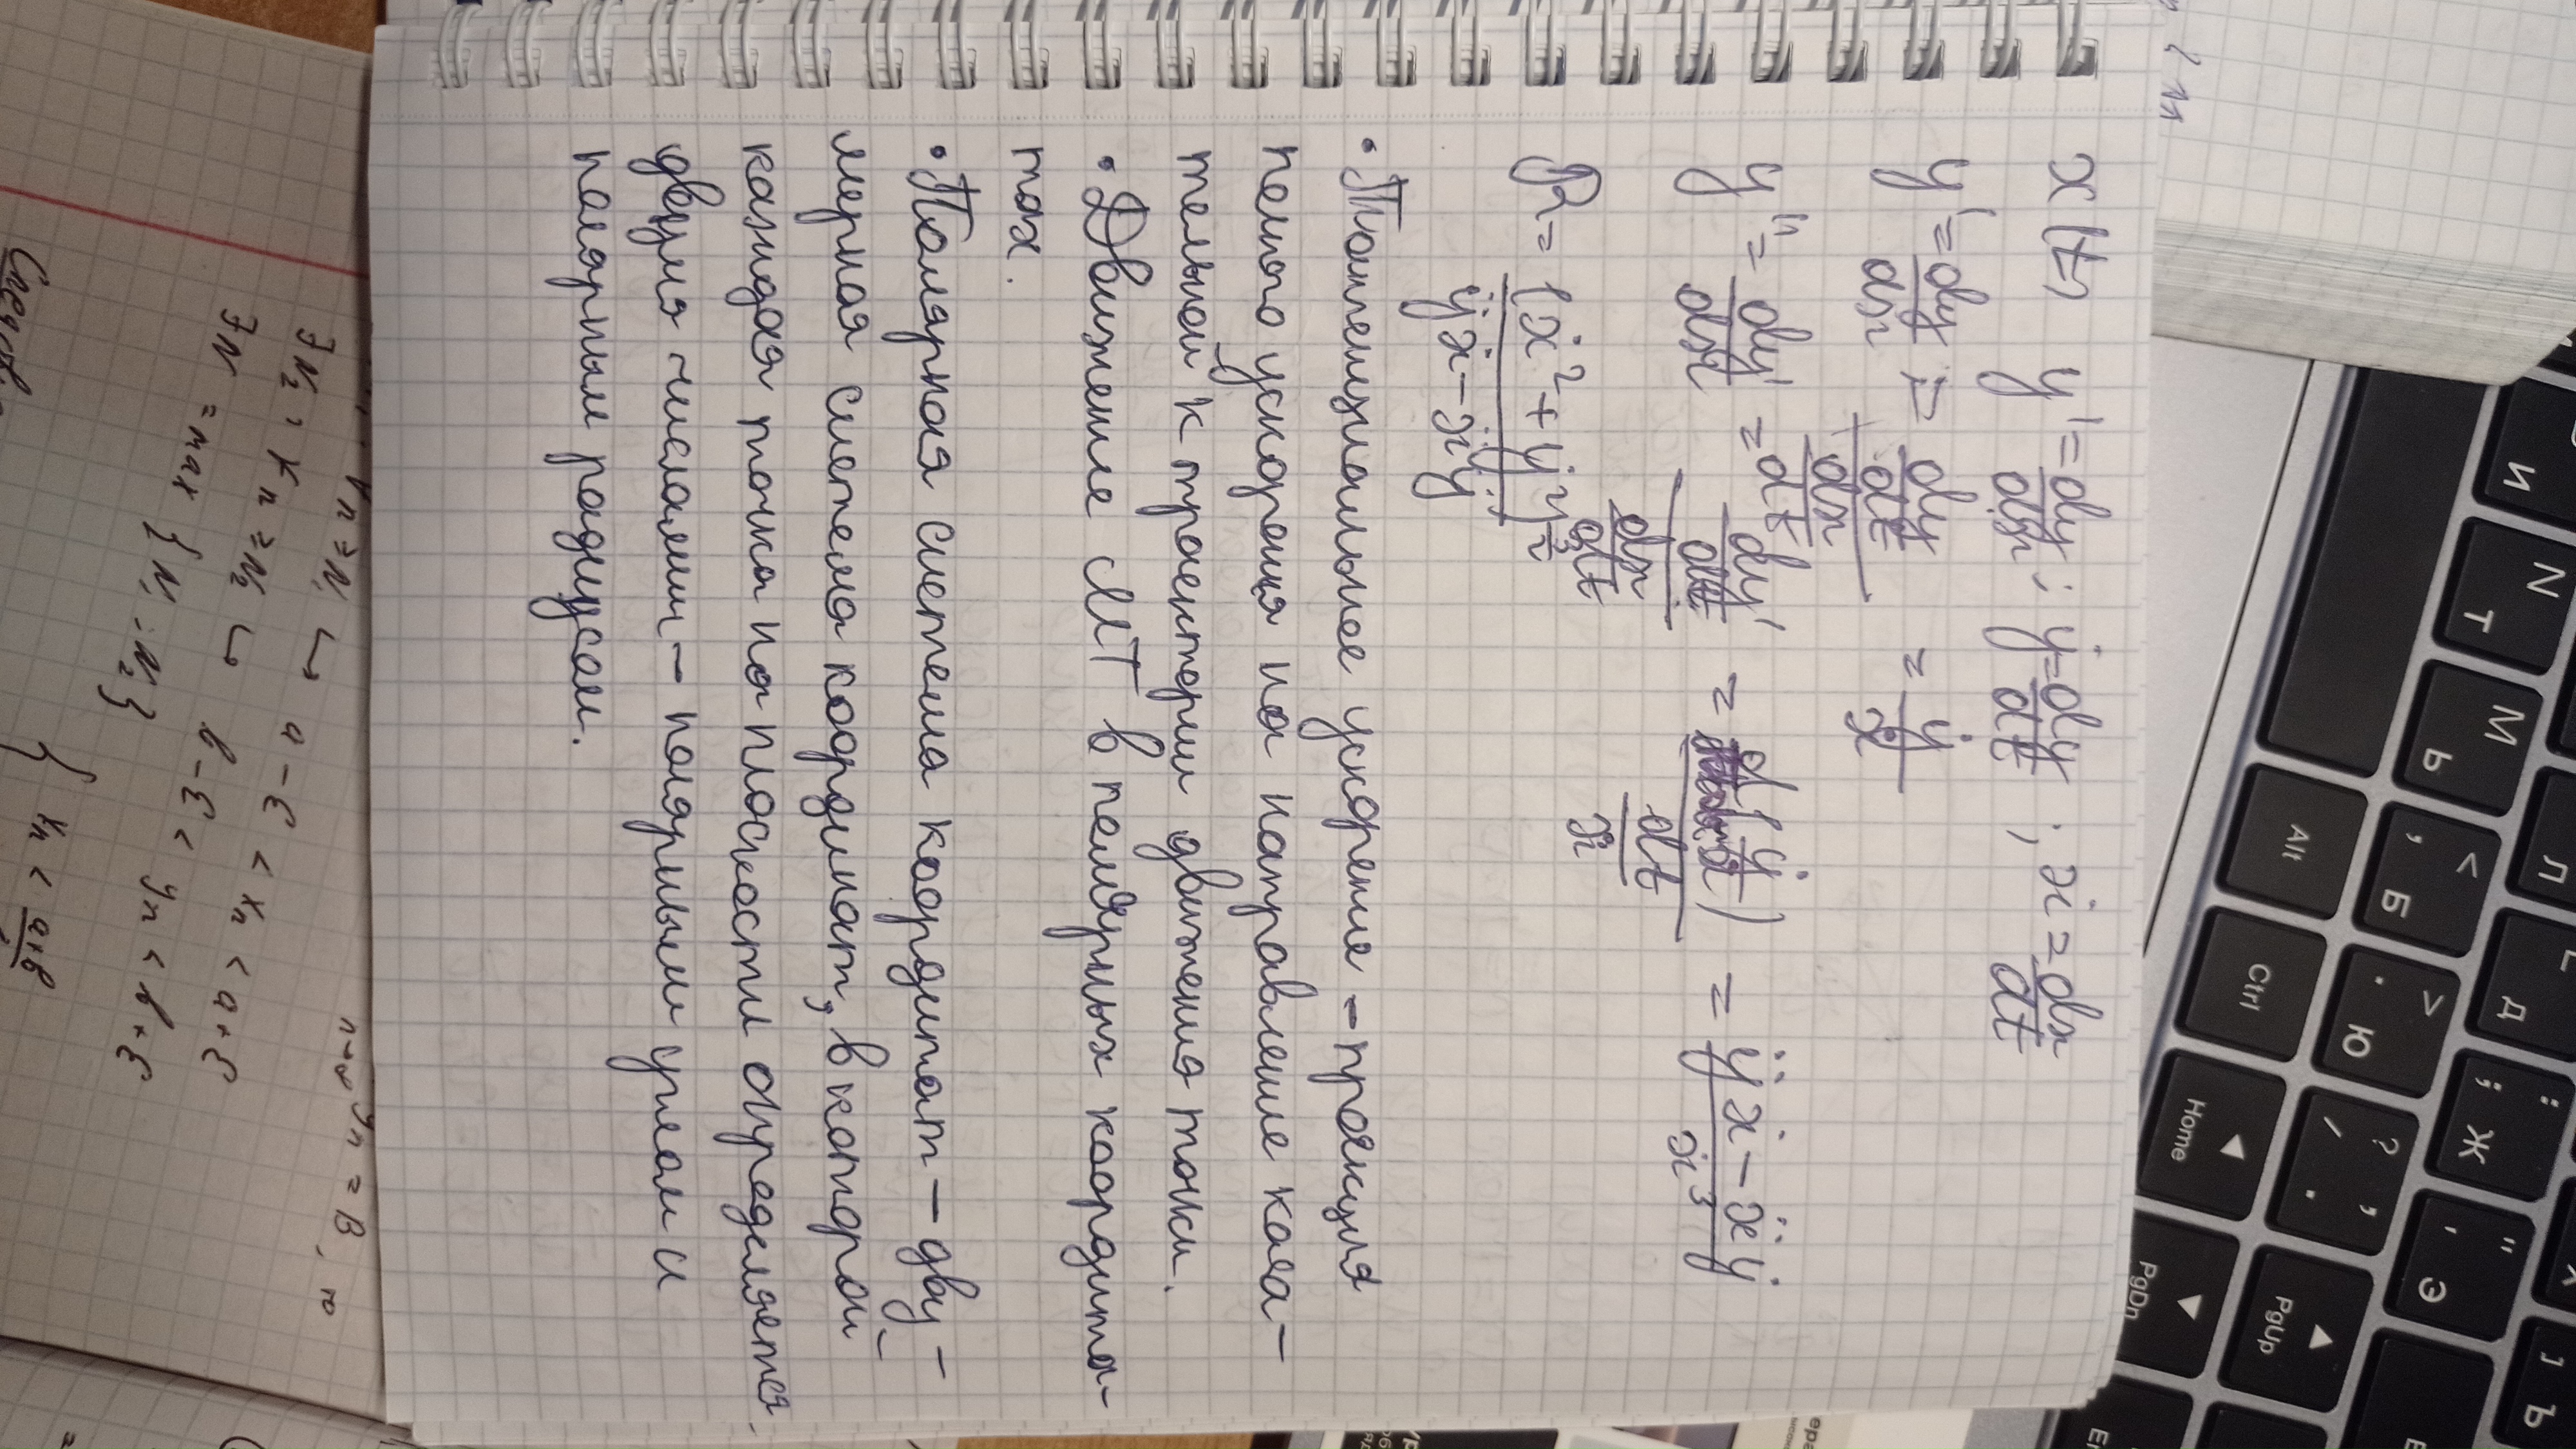 x(t) y' = dy/dx ; ẏ = dy/dt ; ẋ = dx/dt
y' = dy/dx = (dy/dt)/(dx/dt) = ẏ/ẋ
y'' = dy'/dx = (dy'/dt)/(dx/dt) = (d(ẏ/ẋ)/dt)/ẋ = (ÿẋ - ẍẏ)/ẋ³
R = (ẋ² + ẏ²)^(3/2)/(ÿẋ - ẍẏ)
• Тангенциальное ускорение - проекция
полного ускорения на направление каса-
тельной к траектории движения точки.
• Движение МТ в полярных координа-
тах.
• Полярная система координат - дву-
мерная система координат, в которой
каждая точка на плоскости определяется
двумя числами - полярным углом и
полярным радиусом.
n ≥ N₁ ↪ a - ε < xₙ < a + ε
∃N₂, ∀n ≥ N₂ ↪ b - ε < yₙ < b + ε
∃N = max {N₁; N₂}
yₙ = B, то
И
Т N
М Ь
Б , <
Ю . >
Л
Д L
Ж ; :
Э ' "
Ъ ]
/ ? . ,
Alt
Ctrl
Home
PgUp
PgDn